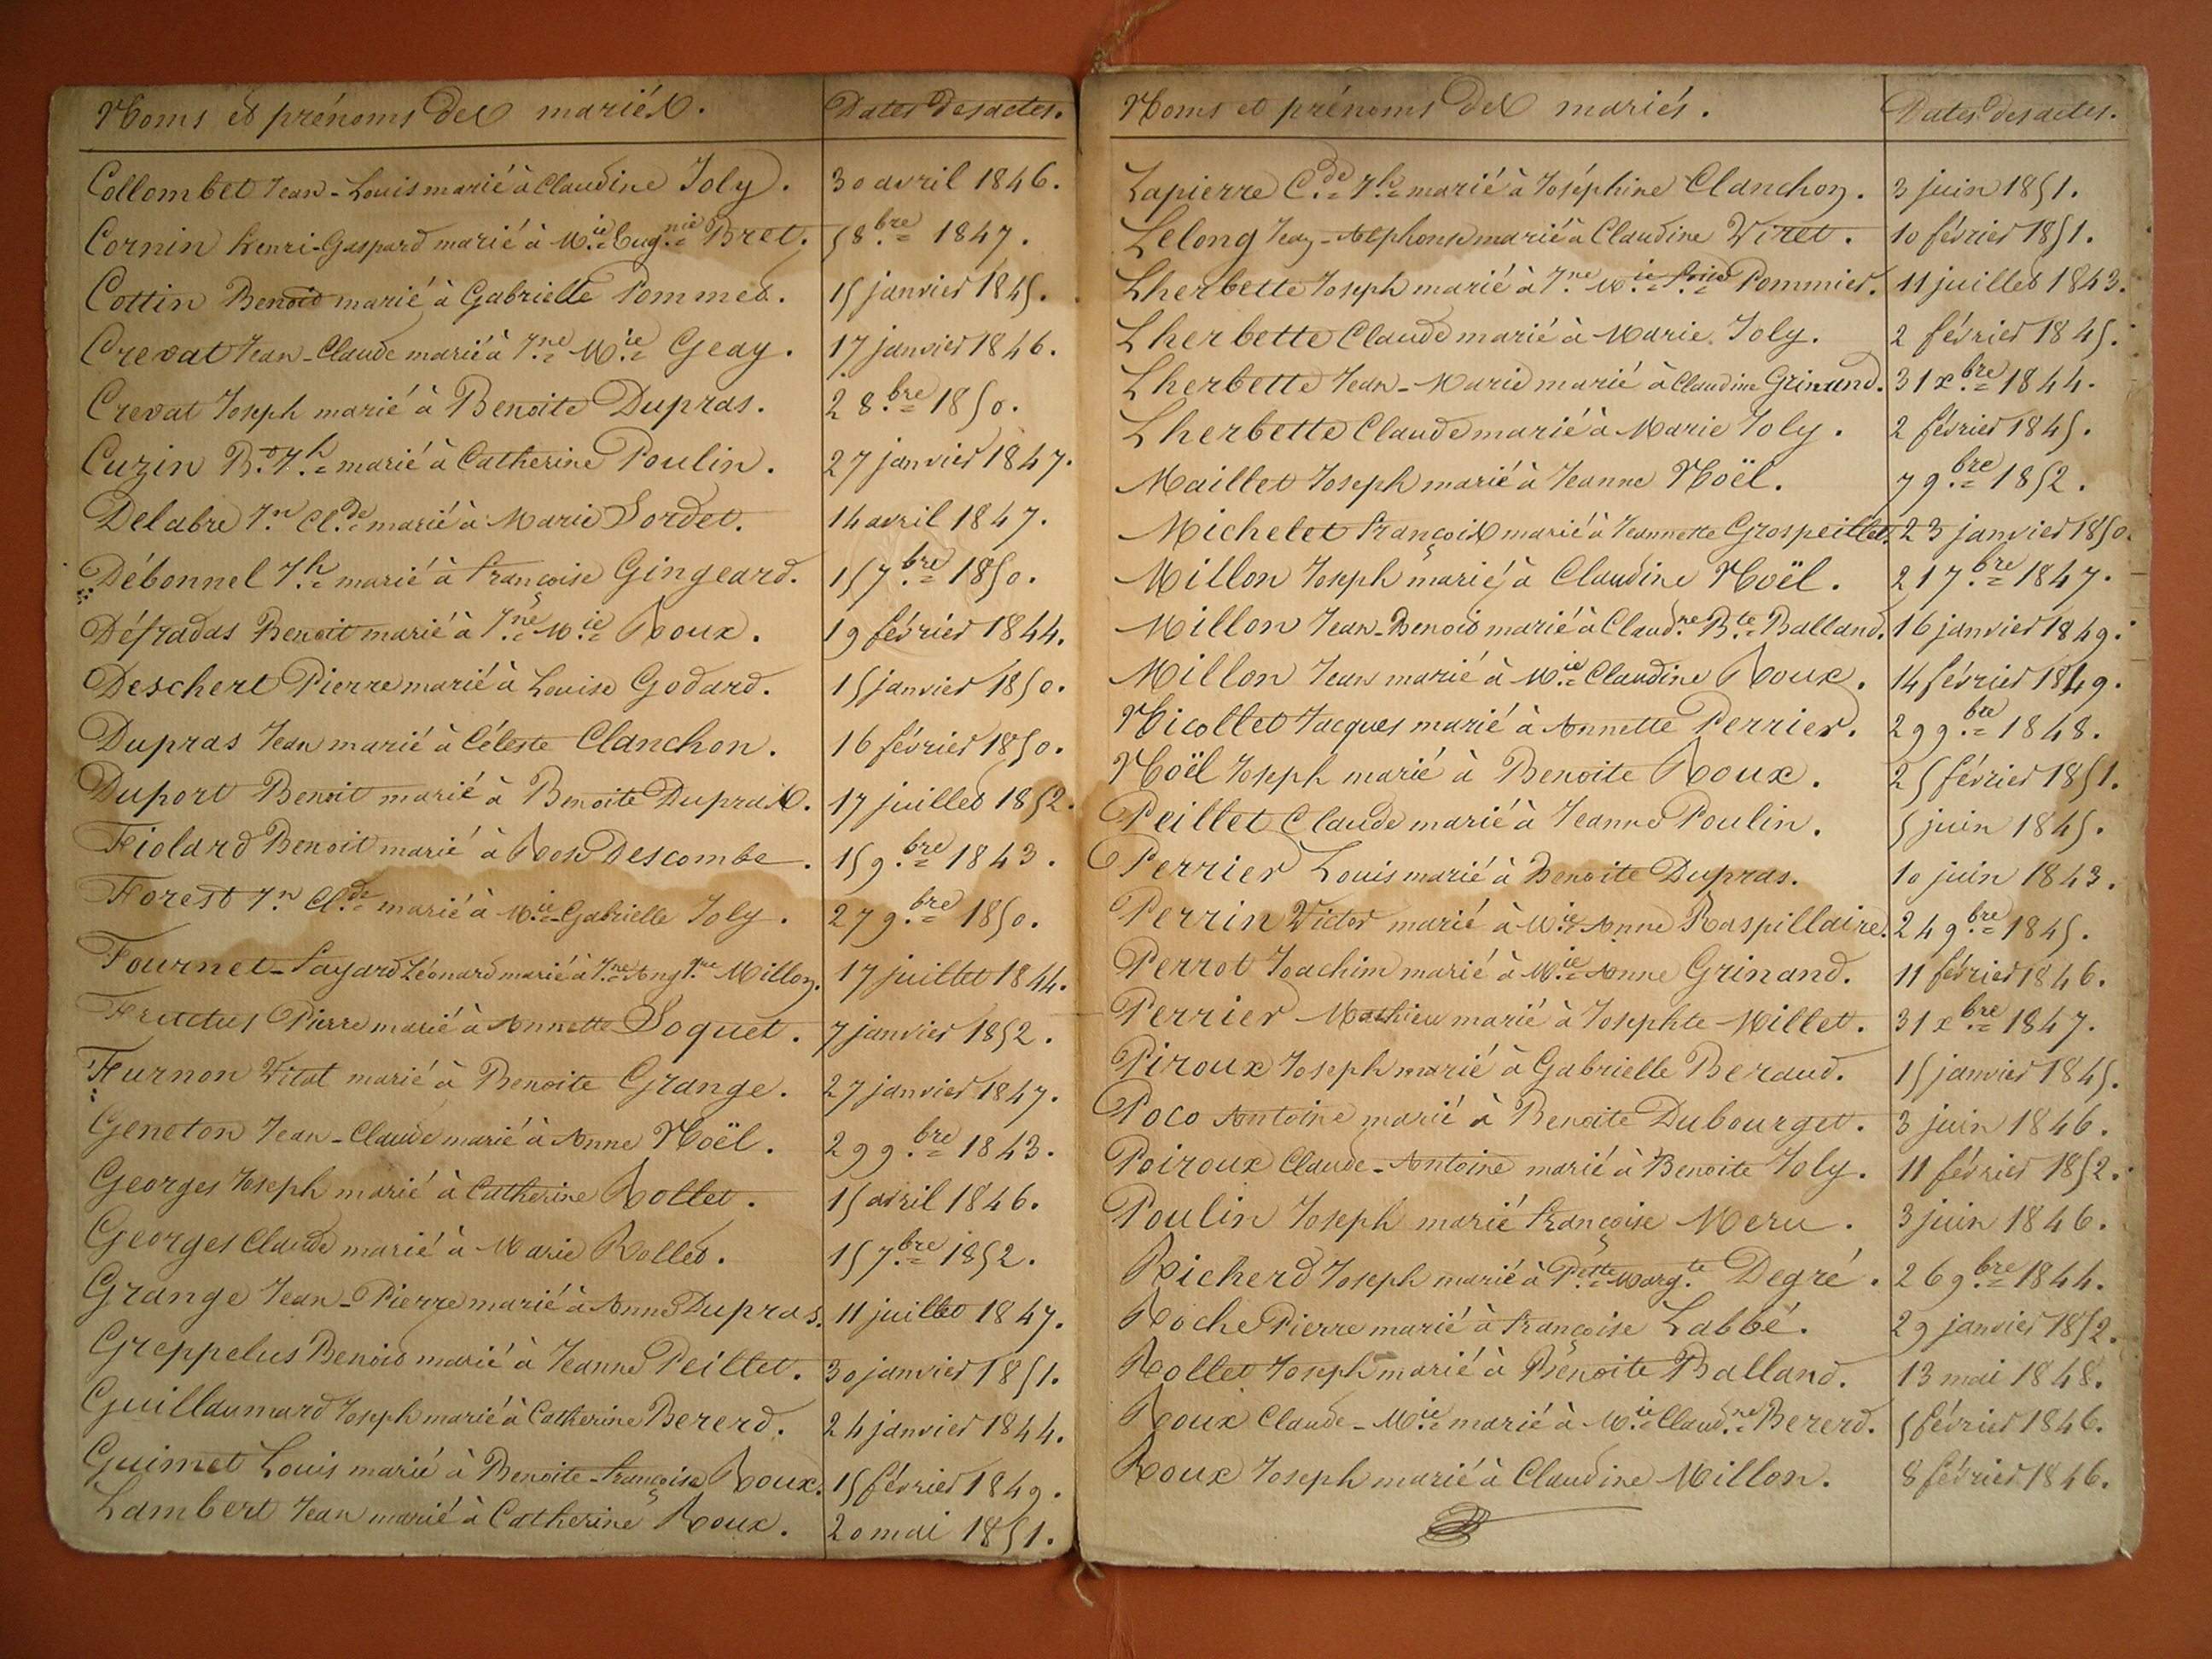 Noms et prénoms des mariés. Dates des actes.
Collombet Jean-Louis marié à Claudine Joly. 30 avril 1846.
Cornin henri-Gaspard marié à M.ie Eug.nie Bret. 5 8.bre 1847.
Cottin Benoit marié à Gabrielle Pommez. 15 janvier 1845.
Crevat Jean-Claude marié à J.ne M.ie Geay. 17 janvier 1846.
Crevat Joseph marié à Benoite Dupras. 2 8.bre 1850.
Cuzin B.t J.h marié à Catherine Poulin. 27 janvier 1847.
Delabre J.n Cl.de marié à Marie Sordet. 14 avril 1847.
Débonnel J.h marié à françoise Gingeard. 15 7.bre 1850.
Défradas Benoit marié à J.ne M.ie Roux. 19 février 1844.
Deschert Pierre marié à Louise Godard. 15 janvier 1850.
Dupras Jean marié à Céleste Clanchon. 16 février 1850.
Duport Benoit marié à Benoite Dupras. 17 juillet 1852.
Fiolard Benoit marié à Rose Descombe. 15 9.bre 1843.
Forest J.n Cl.de marié à M.ie Gabrielle Joly. 27 9.bre 1850.
Fournet-Fayard Léonard marié à J.ne Ang.que Millon. 17 juillet 1844.
Fructus Pierre marié à Annette Soquet. 7 janvier 1852.
Furnon Vital marié à Benoite Grange. 27 janvier 1847.
Geneton Jean-Claude marié à Anne Noël. 29 9.bre 1843.
Georges Joseph marié à Catherine Rollet. 15 avril 1846.
Georges Claude marié à Marie Rollet. 15 7.bre 1852.
Grange Jean-Pierre marié à Anne Dupras. 11 juillet 1847.
Greppelus Benoit marié à Jeanne Peillet. 30 janvier 1851.
Guillaumard Joseph marié à Catherine Bererd. 24 janvier 1844.
Guimet Louis marié à Benoite-françoise Roux. 15 février 1849.
Lambert Jean marié à Catherine Roux. 20 mai 1851.
Noms et prénoms des mariés. Dates des actes.
Lapierre C.de J.h marié à Joséphine Clanchon. 3 juin 1851.
Lelong Jean-Alphonse marié à Claudine Viret. 10 février 1851.
Lherbette Joseph marié à J.ne M.ie Pommier. 11 juillet 1843.
Lherbette Claude marié à Marie Joly. 2 février 1845.
Lherbette Jean-Marie marié à Claudine Grinand. 31 x.bre 1844.
Lherbette Claude marié à Marie Joly. 2 février 1845.
Maillet Joseph marié à Jeanne Noël. 7 9.bre 1852.
Michelet françois marié à Jeannette Grospeillet. 23 janvier 1850.
Millon Joseph marié à Claudine Noël. 21 7.bre 1847.
Millon Jean-Benoit marié à Claud.ne B.te Balland. 16 janvier 1849.
Millon Jean marié à M.ie Claudine Roux. 14 février 1849.
Nicollet Jacques marié à Annette Perrier. 29 9.bre 1848.
Noël Joseph marié à Benoite Roux. 25 février 1851.
Peillet Claude marié à Jeanne Poulin. 5 juin 1845.
Perrier Louis marié à Benoite Dupras. 10 juin 1843.
Perrin Victor marié à M.ie Anne Raspillaire. 24 9.bre 1845.
Perrot Joachim marié à M.ie Anne Grinand. 11 février 1846.
Perrier Mathieu marié à Josephte Millet. 31 x.bre 1847.
Piroux Joseph marié à Gabrielle Beraud. 15 janvier 1845.
Poco Antoine marié à Benoite Dubourget. 3 juin 1846.
Poiroux Claude-Antoine marié à Benoite Joly. 11 février 1852.
Poulin Joseph marié françoise Meru. 3 juin 1846.
Richerd Joseph marié à P.ette Marg.te Degré. 26 9.bre 1844.
Roche Pierre marié à françoise Labbé. 29 janvier 1852.
Rollet Joseph marié à Benoite Balland. 13 mai 1848.
Roux Claude-M.ie marié à M.ie Claud.ne Bererd. 5 février 1846.
Roux Joseph marié à Claudine Millon. 8 février 1846.